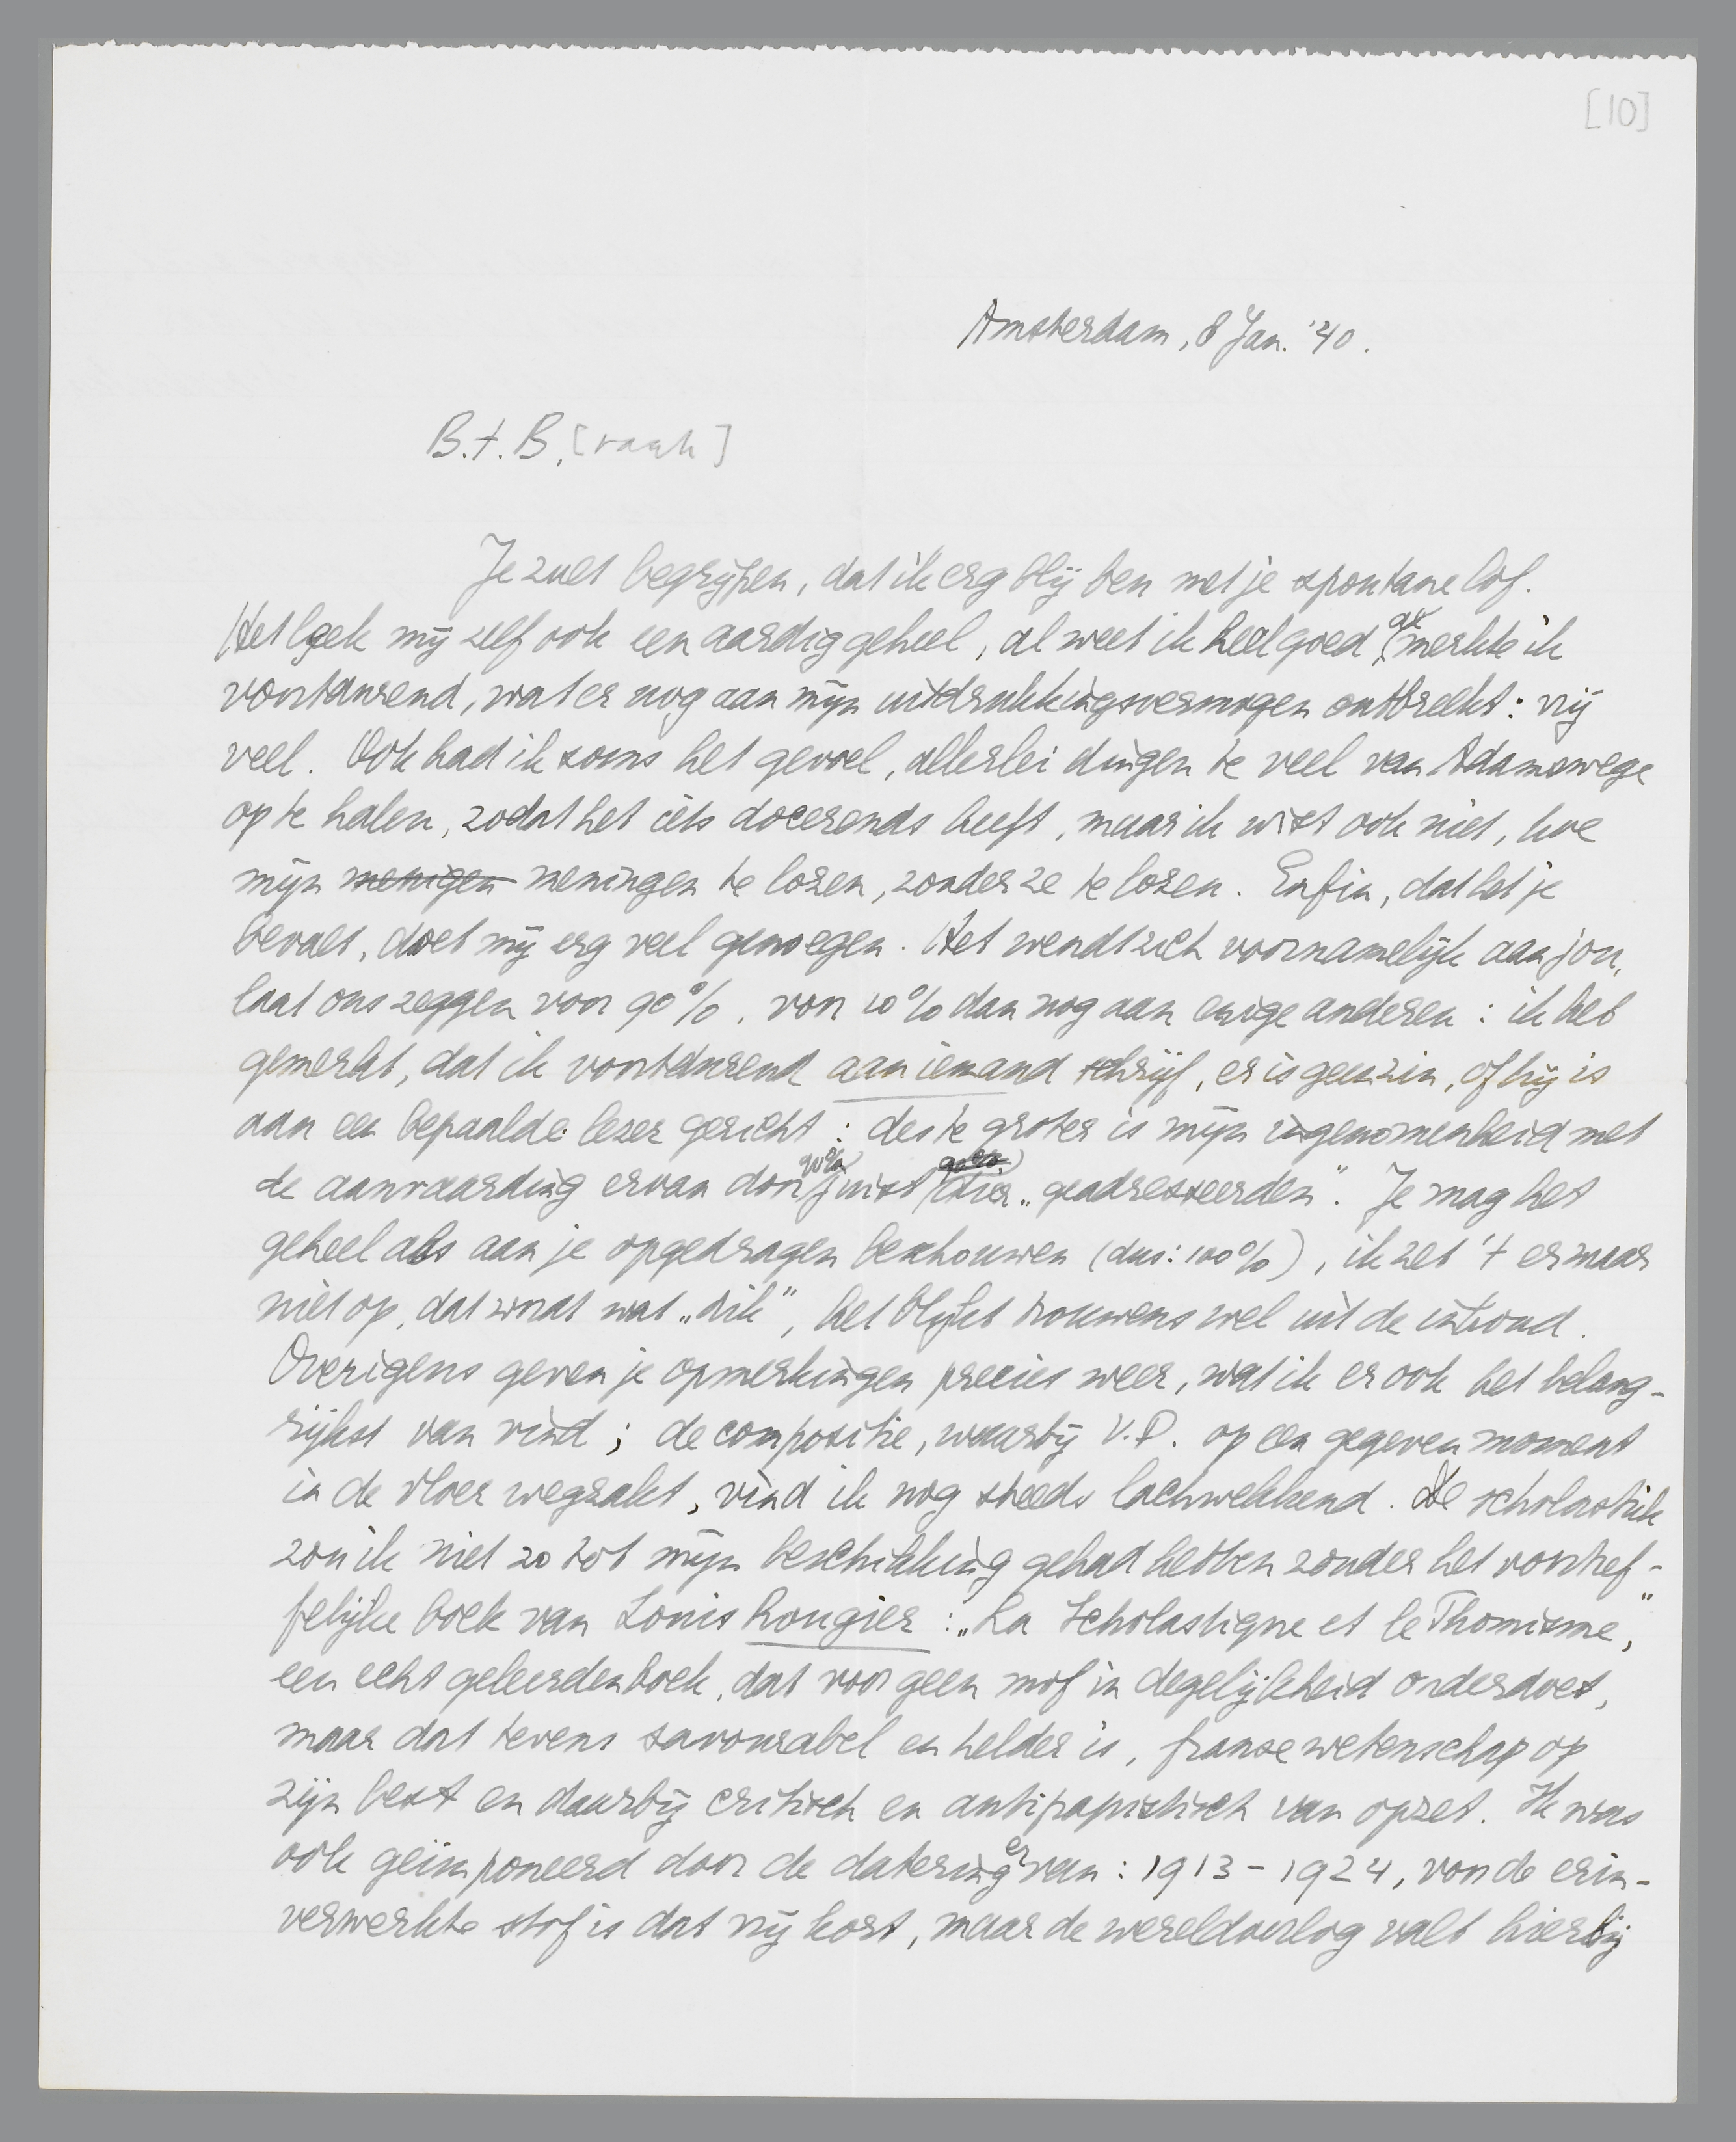 [10]
Amsterdam, 8 Jan. '40.
B.t.B. [raak]
Je zult begrijpen, dat ik erg blij ben met je spontane lof.
Het leek mij zelf ook een aardig geheel, al weet ik heel goed, al merkte ik
voortdurend, wat er nog aan mijn uitdrukkingsvermogen ontbreekt: vrij
veel. Ook had ik soms het gevoel, allerlei dingen te veel van Adamswege
op te halen, zodat het iets docerends heeft, maar ik wist ook niet, hoe
mijn menigen meningen te lozen, zonder ze te lozen. Enfin, dat het je
bevalt, doet mij erg veel genoegen. Het wendt zich voornamelijk aan jou,
laat ons zeggen voor 90%, voor 10% dan nog aan enige anderen: ik heb
gemerkt, dat ik voortdurend aan iemand schrijf, er is geen zin, of hij is
aan een bepaalde lezer gericht: des te groter is mijn ingenomenheid met
de aanvaarding ervan door juist (90%) "geadresseerden". Je mag het
geheel als aan je opgedragen beschouwen (dus: 100%), ik zet 't er maar
niet op, dat wordt wat "dik", het blijkt trouwens wel uit de inhoud.
Overigens geven je opmerkingen precies weer, wat ik er ook het belang-
rijkst van vind; de compositie, waarbij V.D. op een gegeven moment
in de vloer wegzakt, vind ik nog steeds lachwekkend. De scholastiek
zou ik niet zo tot mijn beschikking gehad hebben zonder het voortref-
felijke boek van Louis Rougier: "La Scholastique et le Thomisme",
een echt geleerdenboek, dat voor geen mof in degelijkheid onderdoet,
maar dat tevens savourabel en helder is, franse wetenschap op
zijn best en daarbij critisch en antipapistisch van opzet. Ik was
ook geïmponeerd door de datering ervan: 1913-1924, voor de erin-
verwerkte stof is dat vrij kort, maar de wereldoorlog valt hierbij